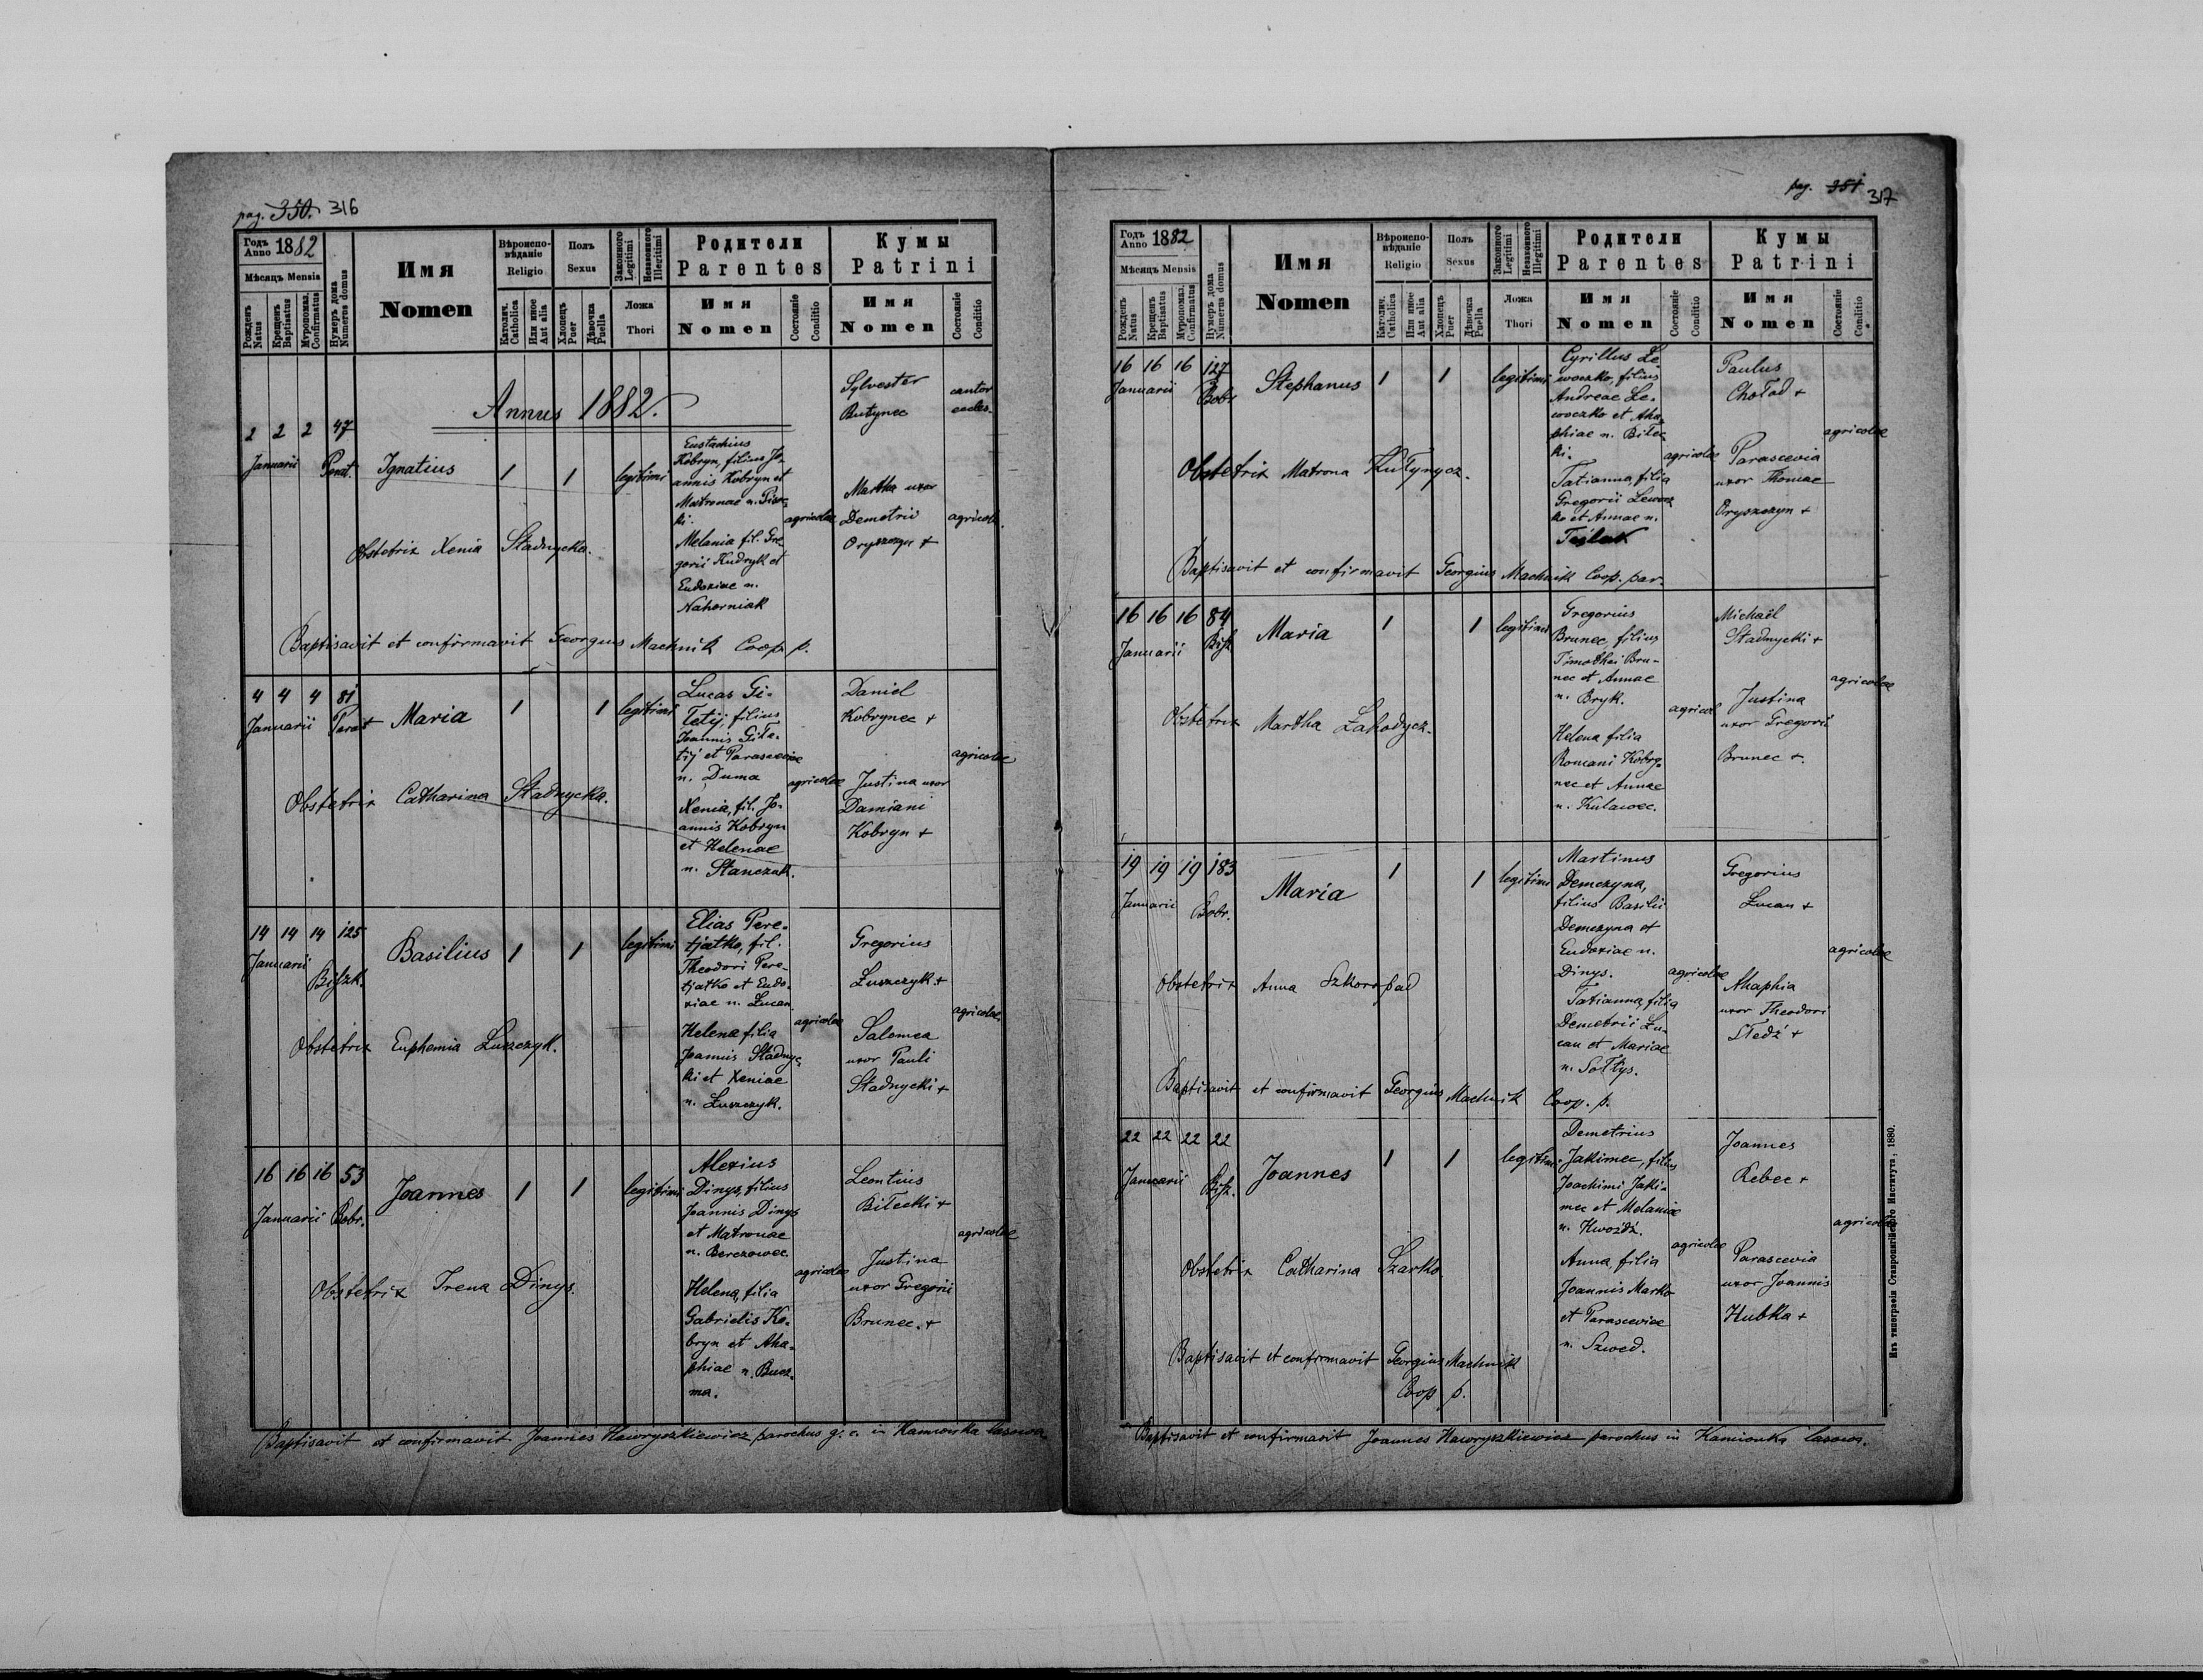 pag. 350. 316
Годъ Anno 1882
Мѣсяцъ Mensis
Рожденъ Natus
Крещенъ Baptisatus
Муропомаз. Confirmatus
Нумеръ дома Numerus domus
Имя
Nomen
Вѣроиспо-
вѣданіе
Religio
Католич. Catholica
Или иное Aut alia
Полъ
Sexus
Хлопецъ Puer
Дѣвочка Puella
Законного Legitimi
Незаконного Illegitimi
Ложа
Thori
Родители
Parentes
Имя
Nomen
Состояніе Conditio
Кумы
Patrini
Имя
Nomen
Состояніе Conditio
Annus 1882.
2 2 2 47
Januarii
Ignatius 1 1 legitimi
Eustachius
Kobryn, filius Jo-
annis Kobryn et
Matronae n.
ki.
Melania fil. Gre
gorii Kudryk et
Eudoxiae n.
Nahorniak
agricolae
Sylvester
Butynec
cantor
eccles.
Martha uxor
Demetrii
Oryszczyn +
agricol.
Obstetrix Xenia Stadnycka.
Baptisavit et confirmavit Georgius Machnik Coop. p.
4 4 4 81
Januarii
Maria 1 1 legitimi
Lucas Gi-
letij, filius
Joannis Gile-
tij et Parasceviae
n. Duma
Xenia, fil. Jo-
annis Kobryn
et Helenae
n. Stanczak.
agricolae
Daniel
Kobrynec +
Justina uxor
Damiani
Kobryn +
agricolae
Obstetrix Catharina Stadnycka.
14 14 14 125
Januarii
Basilius 1 1 legitimi
Elias Pere-
tjatko, fil.
Theodori Pere-
tjatko et Eudo-
xiae n. Łucan
Helena, filia
Joannis Stadnyc-
ki et Xeniae
n. Łuszczyk.
agricolae
Gregorius
Łuszczyk +
Salomea
uxor Pauli
Stadnycki +
agricolae
Obstetrix Euphemia Łuszczyk.
16 16 16 53
Januarii Bobr.
Joannes 1 1 legitimi
Alexius
Dinys, filius
Joannis Dinys
et Matronae
n. Berezowec
Helena, filia
Gabrielis Ko-
bryn et Aha-
phiae n. Bucz-
ma.
agricolae
Leontius
Bilecki +
Justina
uxor Gregorii
Brunec. +
agricolae
Obstetrix Irena Dinys.
Baptisavit et confirmavit Joannes Hawryszkiewicz parochus g. c. in Kamionka lasowa
pag. 351 317
Годъ Anno 1882
Мѣсяцъ Mensis
Рожденъ Natus
Крещенъ Baptisatus
Муропомаз. Confirmatus
Нумеръ дома Numerus domus
Имя
Nomen
Вѣроиспо-
вѣданіе
Religio
Католич. Catholica
Или иное Aut alia
Полъ
Sexus
Хлопецъ Puer
Дѣвочка Puella
Законного Legitimi
Незаконного Illegitimi
Ложа
Thori
Родители
Parentes
Имя
Nomen
Состояніе Conditio
Кумы
Patrini
Имя
Nomen
Состояніе Conditio
16 16 16 127
Januarii Bobr
Stephanus 1 1 legitimi
Cyrillus Le-
woczko, filius
Andreae Le-
woczko et Aha-
phiae n. Bilec
ki.
Tatianna, filia
Gregorii Lewocz
ko et Annae n.
agricolae
Paulus
Chołod +
Parascevia
uxor Thomae
Oryszczyn +
agricolae
Obstetrix Matrona Hułynycz.
Baptisavit et confirmavit Georgius Machnik Coop. par.
16 16 16 84
Januarii
Maria 1 1 legitimi
Gregorius
Brunec, filius
Timothei Bru-
nec et Annae
n. Bryk.
Helena filia
Romani Kobry-
nec et Annae
n. Kulawec.
agricol
Michaël
Stadnycki +
Justina
uxor Gregorii
Brunec +.
agricolae
Obstetrix Martha Zahodycz.
19 19 19 183
Januarii Bobr.
Maria 1 1 legitimi
Martinus
Demczyna,
filius Basilii
Demczyna et
Eudoxiae n.
Dinys.
Tatianna, filia
Demetrii Łu-
can et Mariae
n. Sołtys.
agricolae
Gregorius
Łucan +
Ahaphia
uxor Theodori
Śledź +
agricolae
Obstetrix Anna Szkoropad
Baptisavit et confirmavit Georgius Machnik Coop. p.
22 22 22 22
Januarii
Joannes 1 1 legitimi
Demetrius
Jakimec, filius
Joachimi Jaki-
mec et Melaniae
n. Hwoźdź.
Anna, filia
Joannis Marko
et Parasceviae
n. Szwed.
agricolae
Joannes
Rebec +
Parascevia
uxor Joannis
Hubka +
agricolae
Obstetrix Catharina Szarko
Baptisavit et confirmavit Georgius Machnik
Coop p.
Baptisavit et confirmavit Joannes Hawryszkiewicz parochus in Kamionka lasowa.
Изъ типографіи Ставропигійского Института, 1880.